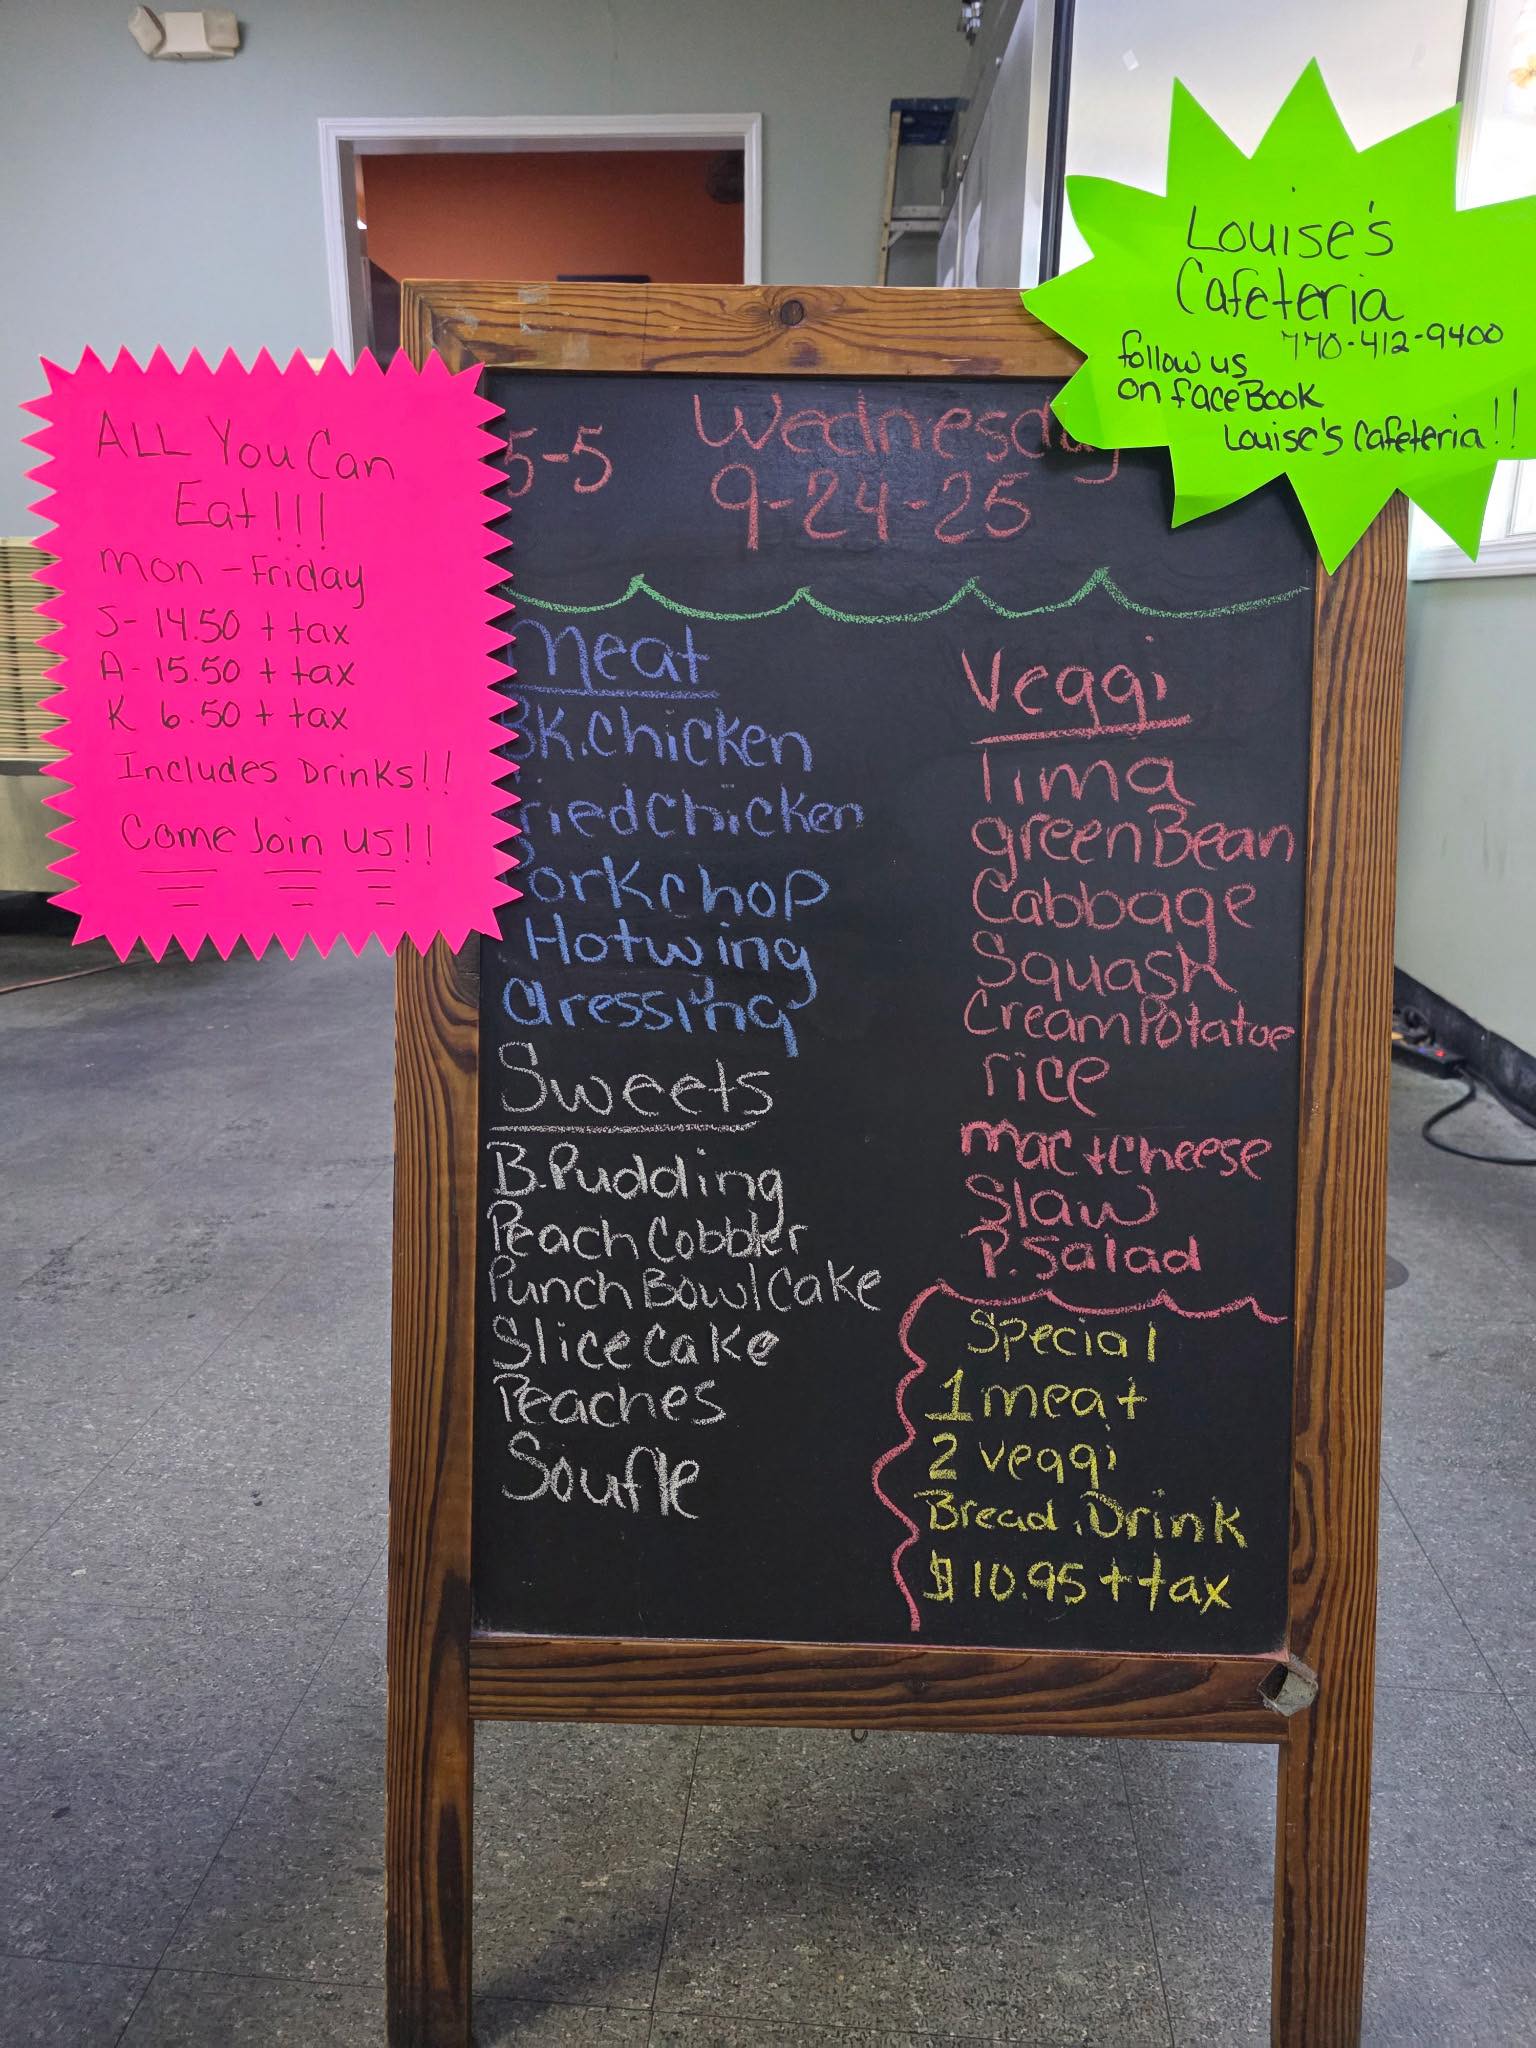 Louise's
Cafeteria
770-412-9400
follow us
on faceBook
Louise's Cafeteria!!
ALL You Can
Eat!!!
Mon - Friday
S- 14.50 + tax
A- 15.50 + tax
K 6.50 + tax
Includes Drinks!!
Come Join us!!
5-5
Wednesday
9-24-25
Meat
BK.Chicken
Fried Chicken
Porkchop
Hotwing
dressing
Sweets
B.Pudding
Peach Cobbler
Punch Bowl Cake
Slice Cake
Peaches
Soufle
Veggi
lima
green Bean
Cabbage
Squash
Cream Potatoe
rice
mac+cheese
Slaw
P. Salad
Special
1 meat
2 veggi
Bread, Drink
$10.95 + tax